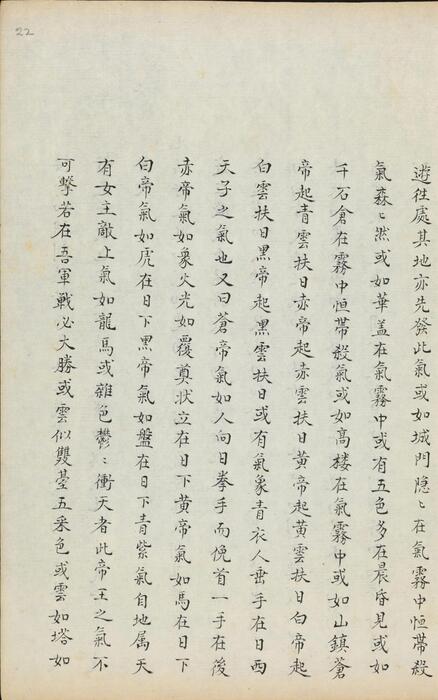 22
遊徃處其地亦先發此氣或如城門隠〻在氣霧中恒帶殺
氣森〻然或如華盖在氣霧中或有五色多在晨昏見或如
千石倉在霧中恒帶殺氣或如高楼在氣霧中或如山鎮蒼
帝起青雲扶日赤帝起赤雲扶日黄帝起黄雲扶日白帝起
白雲扶日黒帝起黒雲扶日或有氣象青衣人垂手在日西
天子之氣也又曰蒼帝氣如人向日拳手而俛首一手在後
赤帝氣如象火光如覆奠状立在日下黄帝氣如馬在日下
白帝氣如虎在日下黒帝氣如盤在日下青紫氣自地属天
有女主敵上氣如龍馬或雜色鬱〻衝天者此帝王之氣不
可擊若在吾軍戦必大勝或雲似雙䑓五采色或雲如塔如